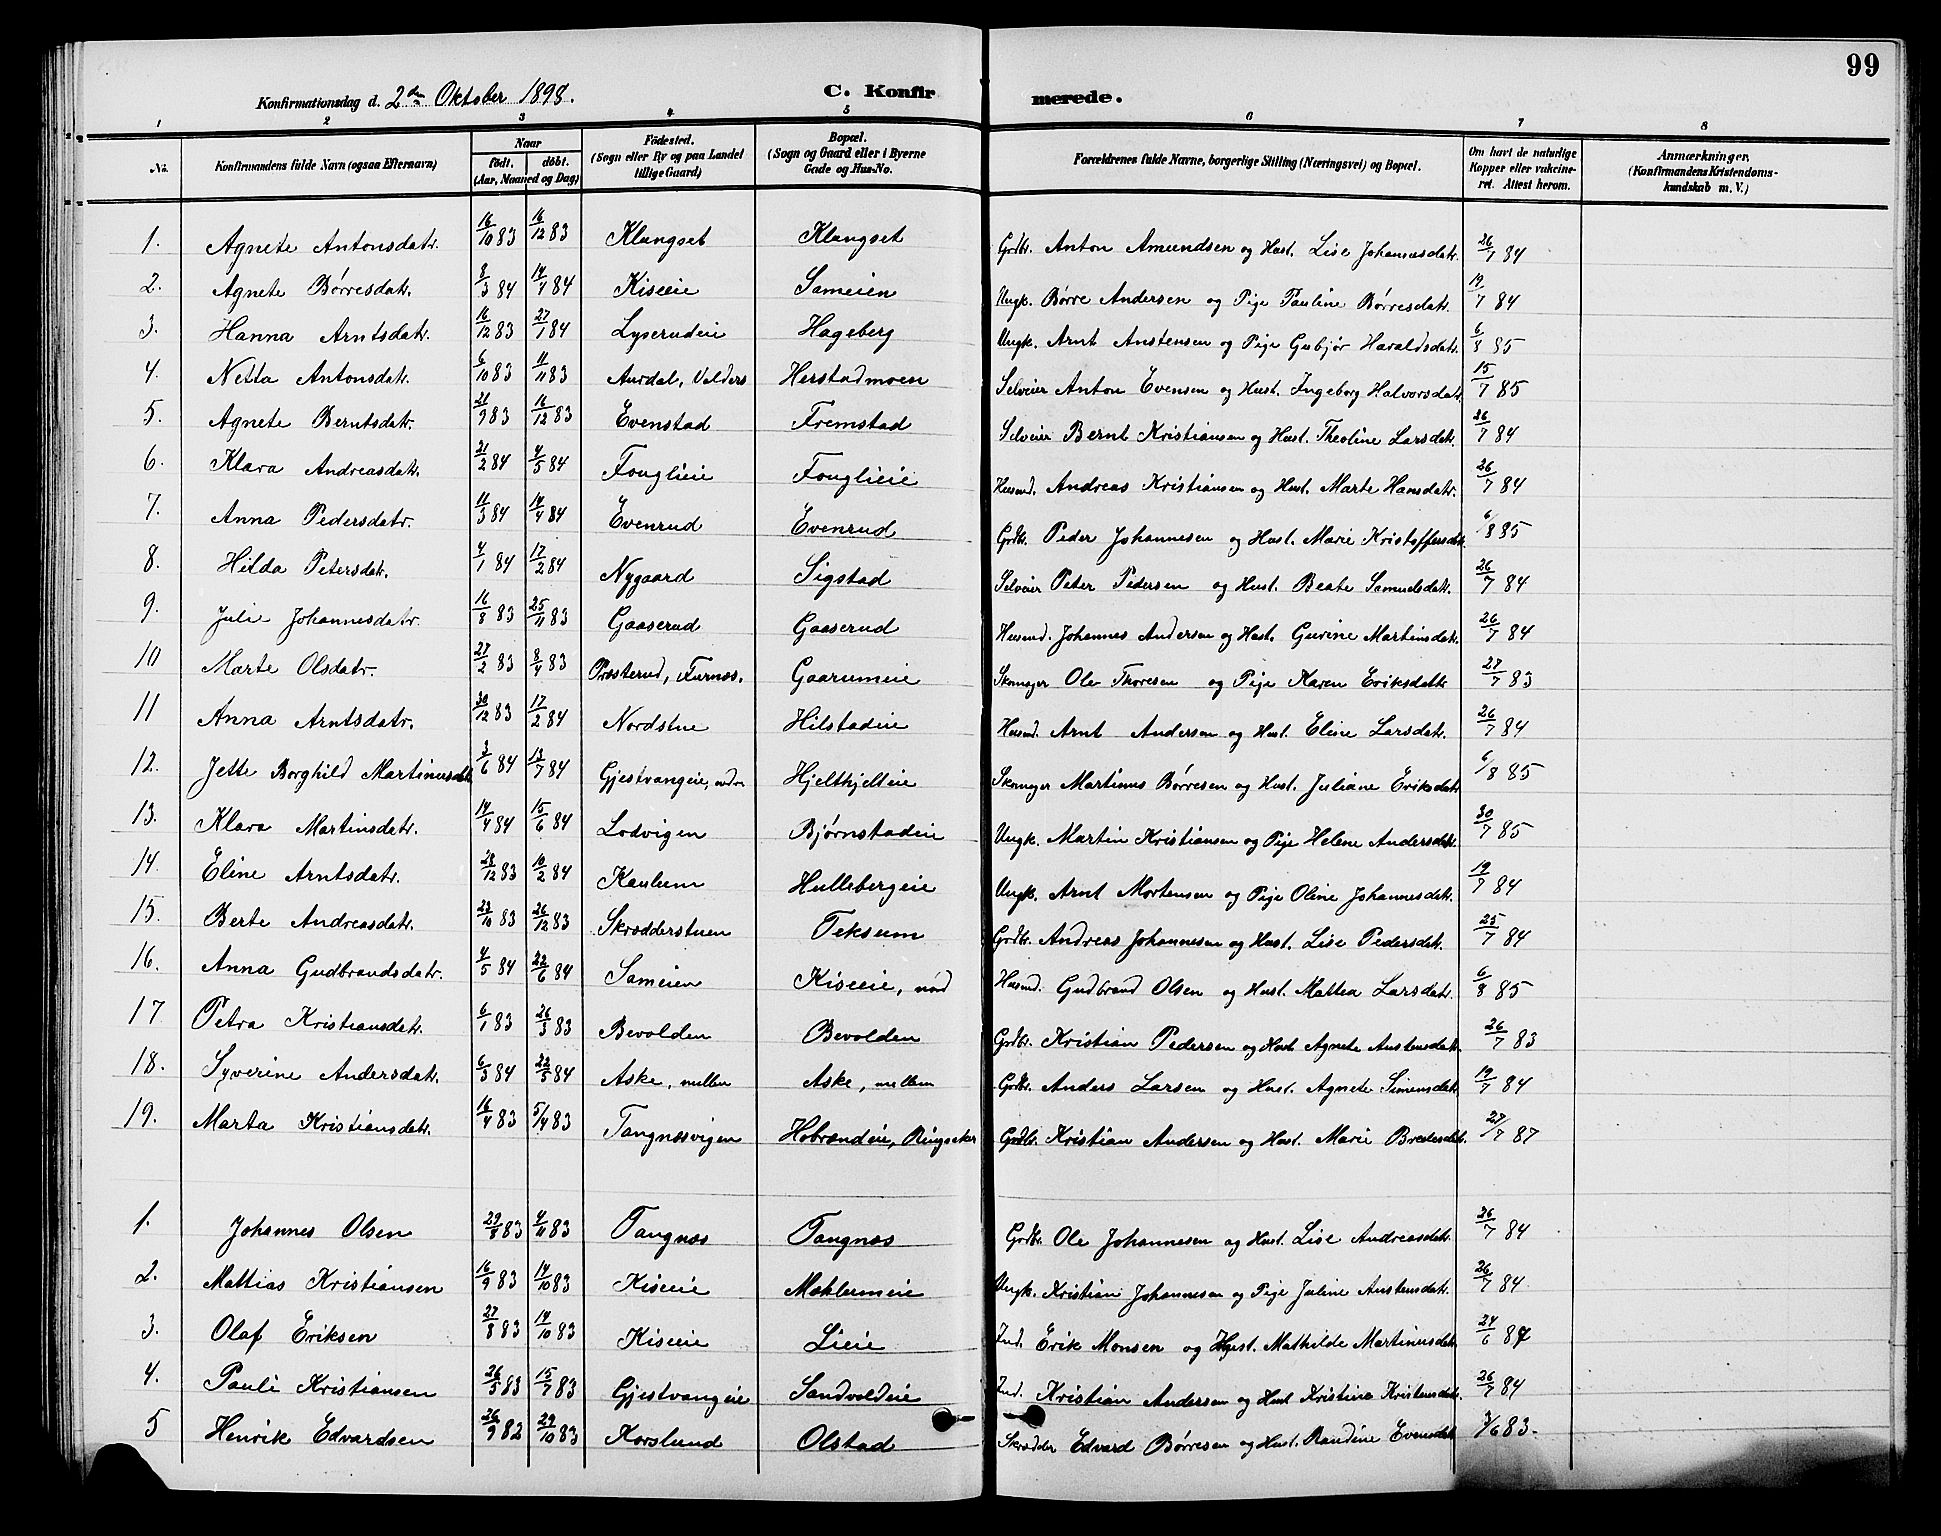 99
Konfirmationsdag d. 2den Oktober 1898. C. Konfirmerede.
1 2 3 4 5 6 7 8
No. Konfirmandens fulde Navn (ogsaa Efternavn) Naar født. døbt. (Aar, Maaned og Dag) Fødested. (Sogn eller By og paa Landet tillige Gaard) Bopæl. (Sogn og Gaard eller i Byerne Gade og Hus-No. Forældrenes fulde Navne, borgerlige Stilling (Næringsvei) og Bopæl. Om havt de naturlige Kopper eller vakcineret. Attest herom. Anmærkninger, (Konfirmandens Kristendomskundskab m. V.)
1. Agnete Antonsdatr. 16/10 83 16/12 83 Klangset Klangset Grdbr. Anton Amundsen og Hust. Lise Johannesdatr. 26/7 84
2. Agnete Børresdatr. 8/3 84 14/4 84 Kiseeie Sameien Ungk. Børre Andersen og Pige Pauline Børresdatr. 19/7 84
3. Hanna Arntsdatr. 16/12 83 27/1 84 Lyserudeie Hageberg Ungk. Arnt Anstensen og Pige Gubjør Haraldsdatr. 6/8 85
4. Netta Antonsdatr. 6/10 83 11/11 83 Aurdal, Valders Herstadmoen Selveier Anton Evensen og Hust. Ingeborg Halvorsdatr. 15/7 85
5. Agnete Berntsdatr. 21/9 83 16/12 83 Evenstad Fremstad Selveier Bernt Kristiansen og Hust. Theoline Larsdatr. 26/7 84
6. Klara Andreasdatr. 21/2 84 4/5 84 Fouglieie Fouglieie Husmd. Andreas Kristiansen og Hust. Marte Hansdatr. 26/7 84
7. Anna Pedersdatr. 11/3 84 14/4 84 Evenrud Evenrud Grdbr. Peder Johannesen og Hust. Marie Kristoffersdatr. 6/8 85
8. Hilda Petersdatr. 4/1 84 17/2 84 Nygaard Sigstad Selveier Peter Pedersen og Hust. Beate Samuelsdatr. 26/7 84
9. Julie Johannesdatr. 16/8 83 25/11 83 Gaaserud Gaaserud Husmd. Johannes Andersen og Hust. Gurine Martinsdatr. 26/7 84
10 Marte Olsdatr. 27/2 83 8/4 83 Præsterud, Furnæs. Gaarumeie Skomager Ole Thoresen og Pige Karen Eriksdatr. 27/7 83
11 Anna Arntsdatr. 30/12 83 17/2 84 Nordstue Hilstadeie Husmd. Arnt Andersen og Hust. Eline Larsdatr. 26/7 84
12. Jette Borghild Martinusdatr. 3/6 84 13/7 84 Gjestvangeie, nedre Hjeltkjelteie Skomager Martinus Børresen og Hust. Juliane Eriksdatr. 6/8 85
13. Klara Martinsdatr. 14/4 84 15/6 84 Lodvigen Bjørnstadeie Ungk. Martin Kristiansen og Pige Helene Andersdatr. 30/7 85
14. Eline Arntsdatr. 28/12 83 10/2 84 Kaulum Hullebergeie Ungk. Arnt Mortensen og Pige Oline Johannesdatr. 19/7 84
15. Berte Andreasdatr. 23/10 83 26/12 83 Skrædderstuen Teksum Grdbr. Andreas Johannesen og Hust. Lise Pedersdatr. 25/7 84
16. Anna Gudbrandsdatr. 4/5 84 22/6 84 Sameien Kiseeie, nord Husmd. Gudbrand Olsen og Hust. Mathea Larsdatr. 6/8 85
17 Petra Kristiansdatr. 6/1 83 26/3 83 Bevolden Bevolden Grdbr. Kristian Pedersen og Hust. Agnete Austensdatr. 26/7 83
18. Syverine Andersdatr. 6/3 84 22/5 84 Aske, mellem Aske, mellem Grdbr. Anders Larsen og Hust. Agnete Simensdatr. 19/7 84
19. Marta Kristiansdatr. 16/4 83 5/4 83 Tangnæsvigen Hobrændeie, Ringsaker Grdbr. Kristian Andersen og Hust. Marie Bredesdatr. 27/7 87
1. Johannes Olsen 29/8 83 4/11 83 Tangnæs Tangnæs Grdbr. Ole Johannesen og Hust. Lise Andreasdatr. 26/7 84
2. Mattias Kristiansen 16/9 83 14/10 83 Kiseeie Mæhlumeie Ungk. Kristian Johannesen og Pige Juline Austensdatr. 26/7 84
3. Olaf Eriksen 27/8 83 14/10 83 Kiseeie Lieie Ind. Erik Monsen og Hust. Mathilde Martinusdatr. 24/6 84
4. Pauli Kristiansen 26/5 83 15/7 83 Gjestvangeie Sandvoldeie Ind. Kristian Andersen og Hust Kristine Kristensdatr. 26/7 84
5 Henrik Edvardsen 26/9 82 29/10 83 Korslund Olstad Skrædder Edvard Børresen og Hust. Randine Evensdatr. 3/6 83.